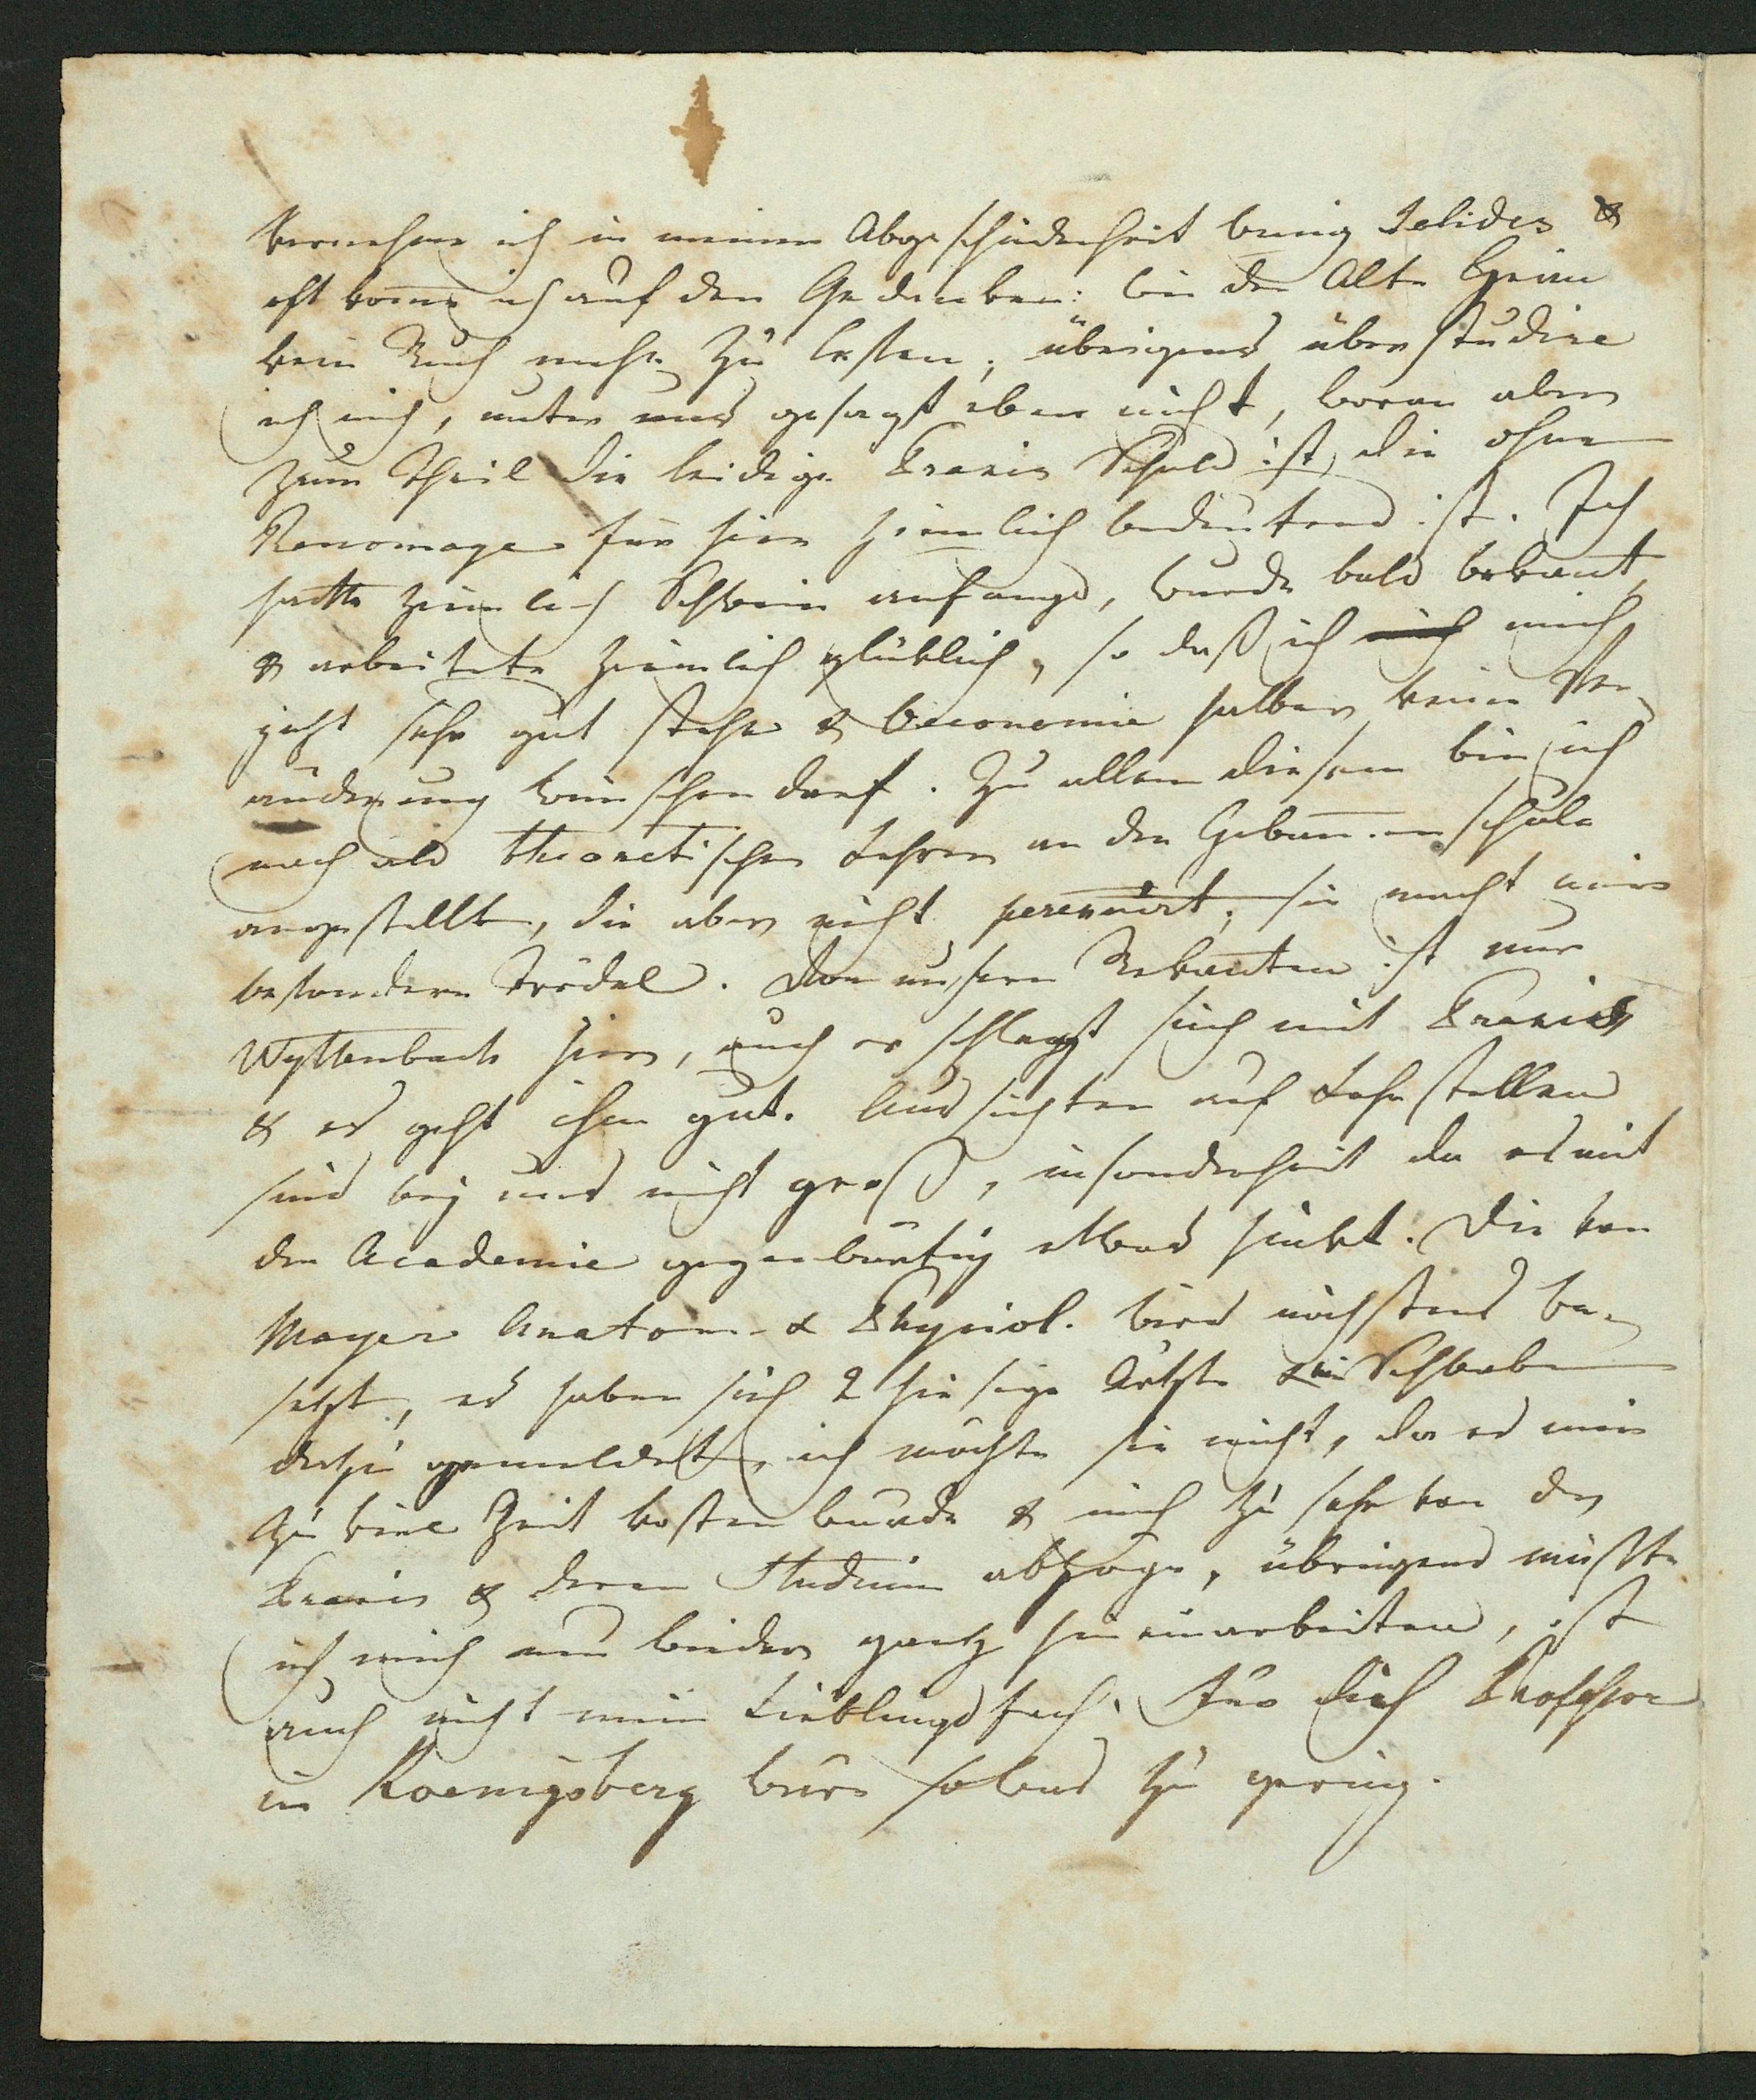 vernehme ich in meiner Abgeschiedenheit wenig Solides &
oft komme ich auf den Gedanken: wie der Alte
kein Buch mehr zu lesen; übrigens überstudire
ich mich, unter uns gesagt eben nicht, woran aber
zum Theil die leidige Praxis Schuld ist, die ohne
Renomage für hier ziemlich bedeutend ist. Ich
hatte ziemlich Schwein anfangs, wurde bald bekannt,
& arbeitete ziemlich glüklich, so daß ich mich mich
jezt sehr gut stehe & Oeconomie halber keine Ver-
änderung wünschen darf. Zu allem diesem bin ich
noch als theoretischer Lehrer an der Hebammenschule
angestellt, die aber nicht perennirt, sie macht mir
besondern Trödel. Von unsern Bekannten ist nur
Wyttenbach hier, auch er schlägt sich mit Praxis
& es geht ihm gut. Aussichten auf Lehrstellen
sind bej uns nicht groß, insonderheit da es mit
der Academie gegenwärtig etwas hinkt. Die von
Mayer Anatom- & Physiol. wird nächstens be-
setzt, es haben sich 2 hiesige Ärtzte & ein Schwabe
dazu gemeldet, ich möchte sie nicht, da es mir
zu viel Zeit kosten würde & mich zu sehr von der
Praxis & deren Studium abzöge, übrigens müßte
ich mich nun wieder gantz hineinarbeiten, ist
auch nicht mein Lieblingsfach. Für dich Professor
in Koenigsberg wäre so was zu gering.